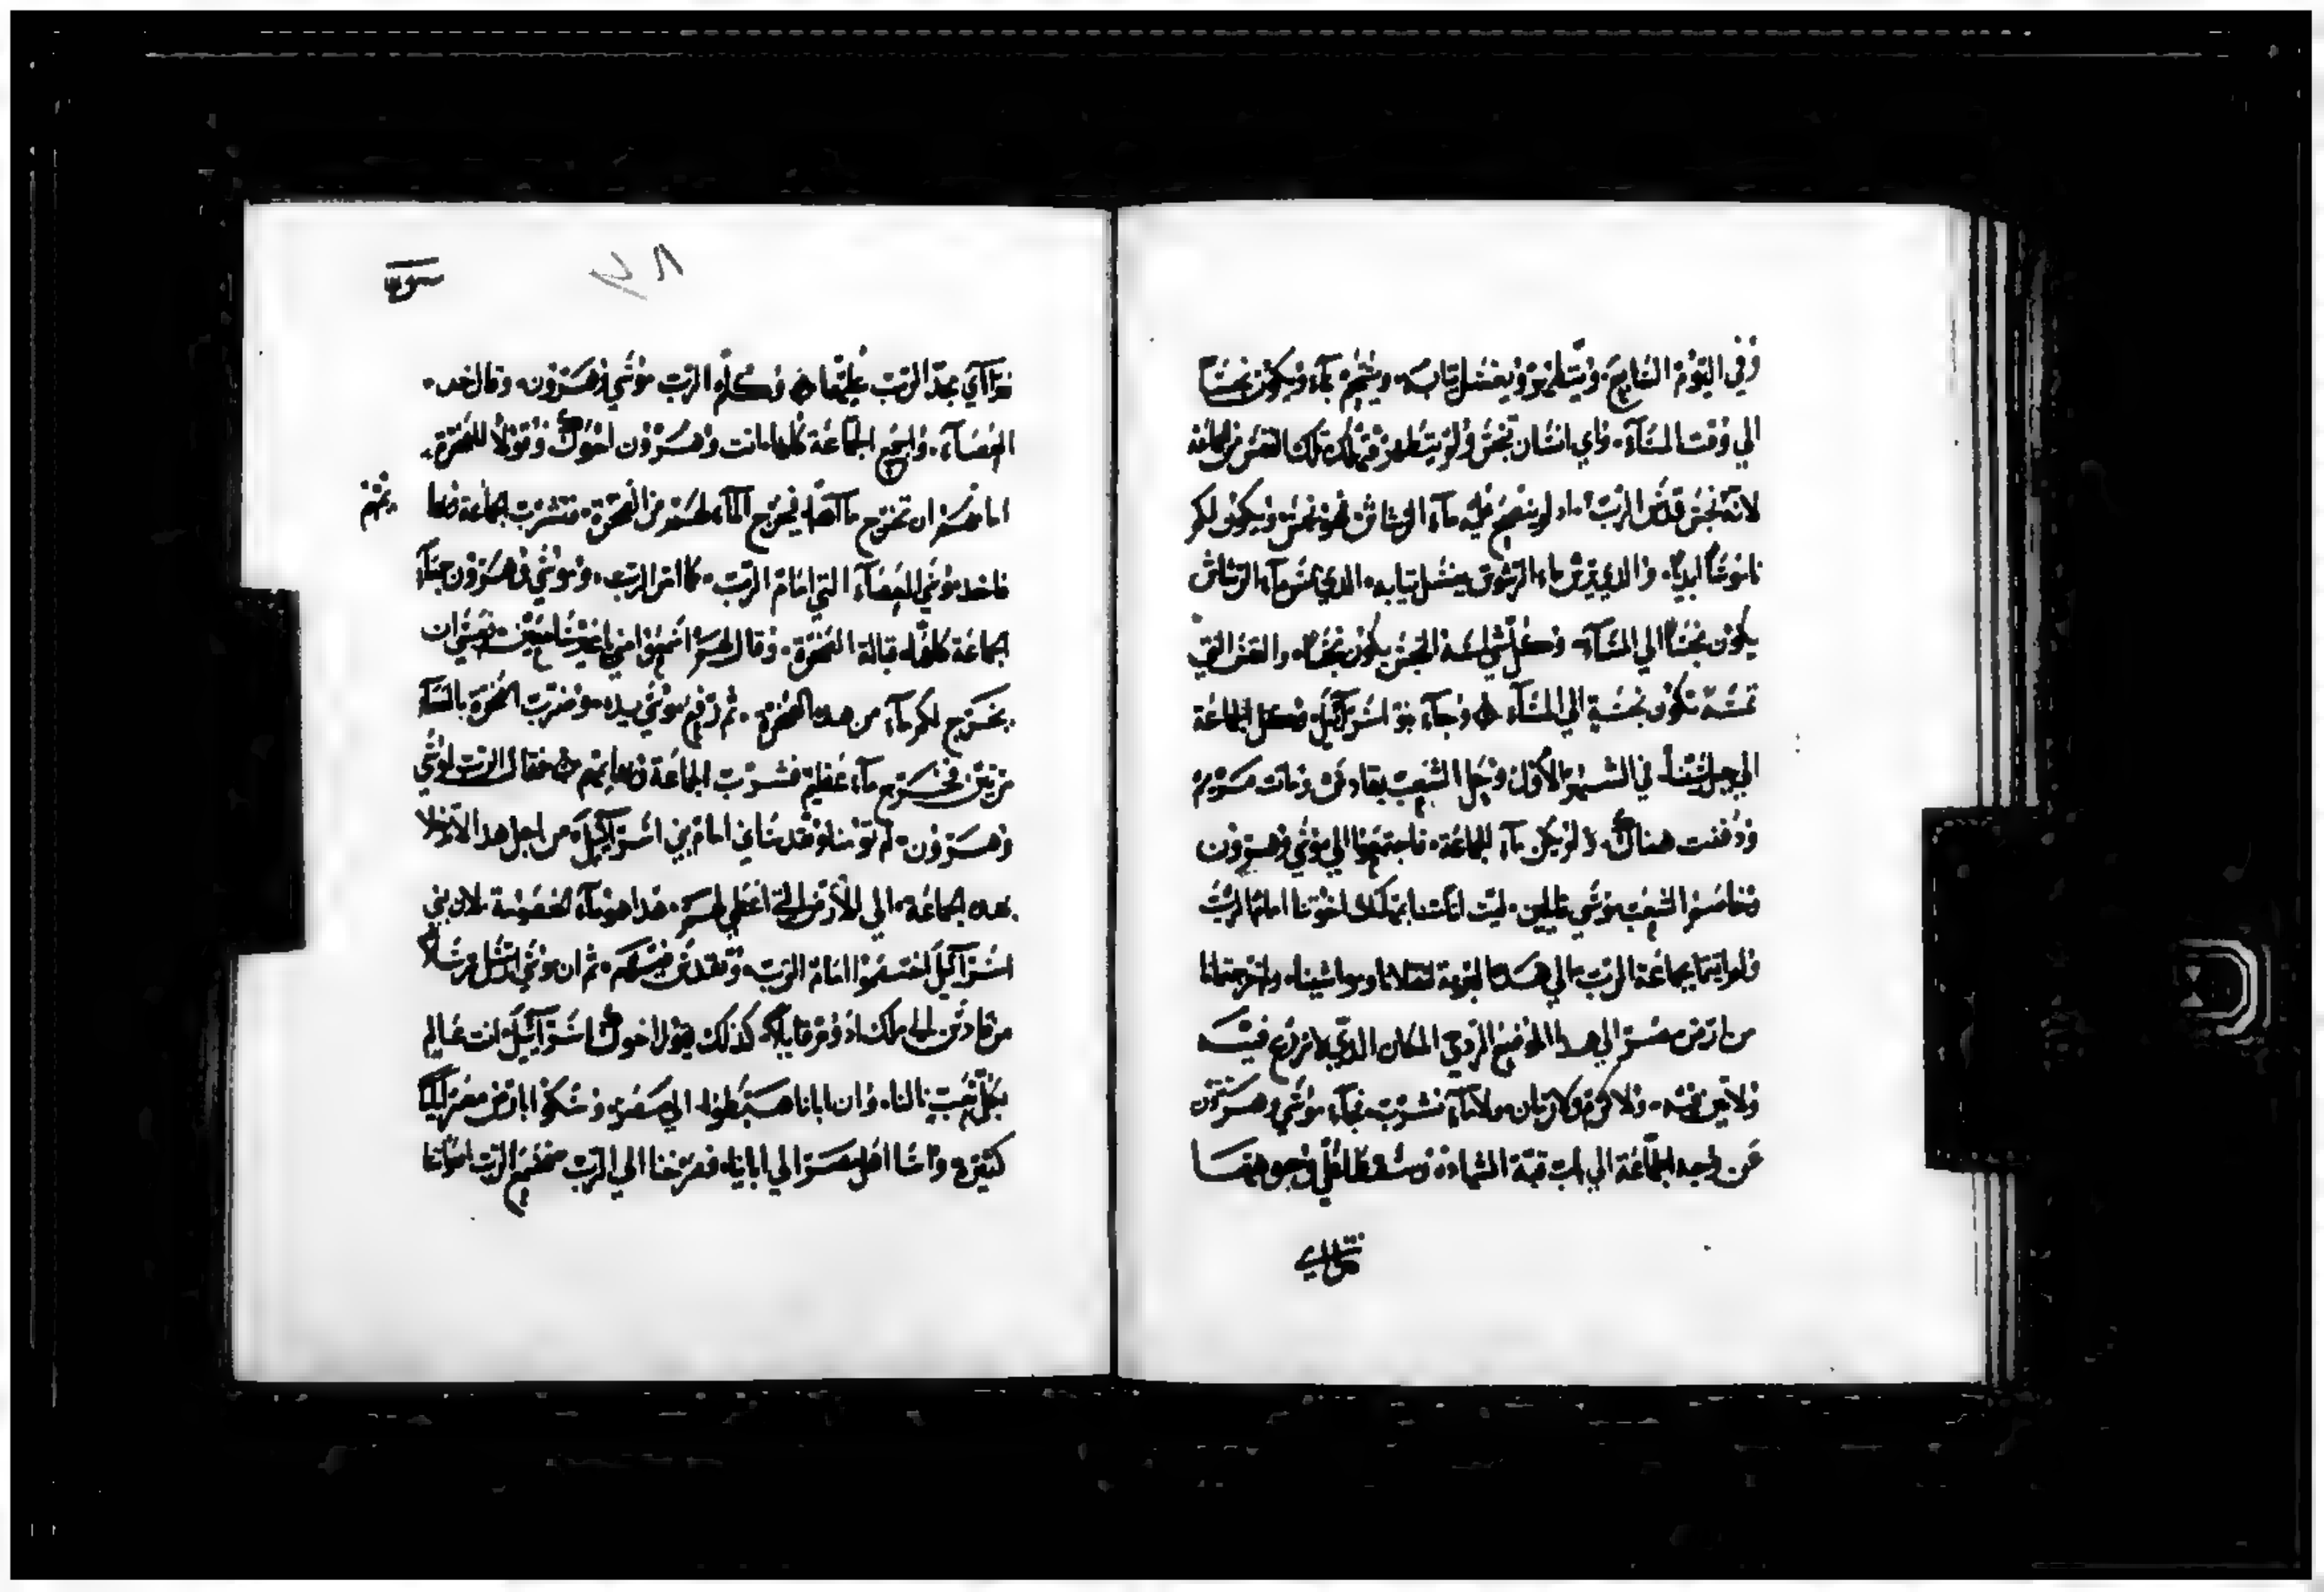 وفي اليوم السابع ويتطهر ويغسل ثيابه ويستحم بماء ويكون نجسًا
الي وقت المسآء واي انسان تنجس ولم يتطهر تلك النفس من الجماعة
لانه نجس قدس الرب لم ينضح عليه مآء الرشاش فهو نجس ويكون لكم
ناموسًا ابديًا والذي يرش مآء الرشوش يغسل ثيابه الذي يمس مآء الرشاش
يكون نجسًا الي المسآء وكل شي لمسه النجس يكون نجسًا والنفس التي
تمسه تكون نجسة الي المسآء وجآء بنو اسرآئيل وكل الجماعة
الي جبل سينا في الشهر الاول وحل الشعب بقادس وماتت مريم
ودفنت هناك ولم يكن مآء للجماعة فاجتمعوا الي موسي وهرون
وخاصم الشعب موسي قايلين ليت اننا متنا اخوتنا امام الرب
ولم اتيتما بجماعة الرب الي هذه البرية لقتلانا ومواشينا واخرجتمانا
من ارض مصر الي هذا الموضع الردي المكان الذي لا يزرع فيه
ولا تين فيه ولا كرم ولا رمان ولا مآء نشرب فجآء موسي وهرون
عن وجه الجماعة الي باب قبة الشهادة وسقطا علي وجوههما
فترااي
فتراآي مجد الرب عليهما وكلم الرب موسي وهرون وقال خد
العصآء واجمع الجماعة كلها انت وهرون اخوك وقولا للصخرة
امامهم ان تخرج مآها فيخرج المآء لهم من الصخرة فتشرب الجماعة
فاخد موسي العصآء التي امام الرب كما امر الرب وموسي وهرون جمعآ
الجماعة كلها قبالة الصخرة وقال لهم اسمعوا مني
يخرج لكم مآء من هذه الصخرة ثم رفع موسي يده وضرب الصخرة بالعصآ
مرتين فخرج مآء عظيم فشربت الجماعة وبهايمهم فقال الرب لموسي
وهرون لم تومنا وتقدساني امام بني اسرآئيل من اجل هذا لا تدخلا
هذه الجماعة الي الارض التي اعطي لهم هذا هو مآء الخصومة لان بني
اسرآئيل اختصموا امام الرب وتقدس فيهم ثم ان موسي ارسل رسلاً
من قادس الي ملك ادوم قايلاً كذلك يقول اخوك اسرآئيل انت عالم
بكل تعب نالنا وان ابانا هبطوا الي مصر وسكنوا بارض مصر
كثيره واسا اهل مصر الي اباينا فصرخنا الي الرب فسمع الرب اصواتنا